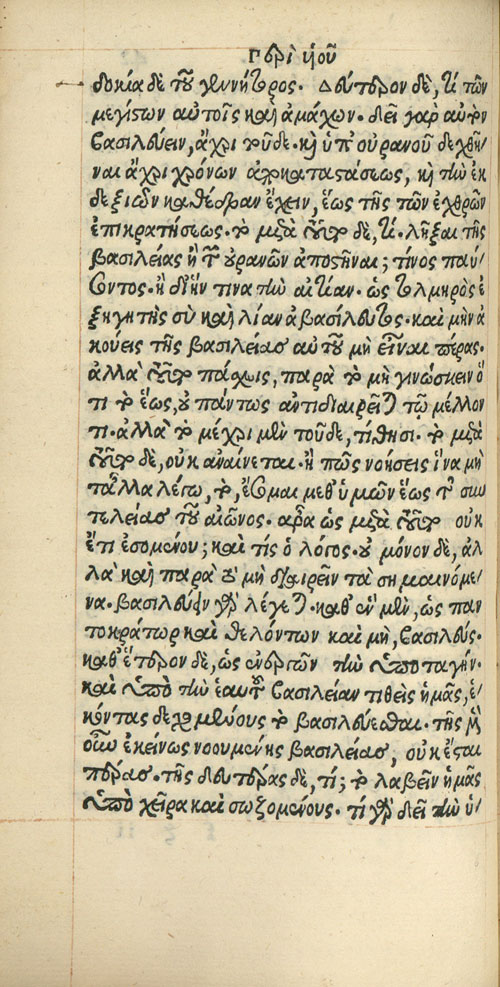 Περὶ υἱοῦ
δοκία δὲ τοῦ γεννήτορος. Δεύτερον δὲ, τί τῶν
μεγίστων αὐτοῖς καὶ ἀμάχων. δεῖ γὰρ αὐτὸν
βασιλεύειν, ἄχρι τοῦδε. καὶ ὑπ' οὐρανοῦ δεχθῆ-
ναι ἄχρι χρόνων ἀποκαταστάσεως, καὶ τὴν ἐκ
δεξιῶν καθέδραν ἔχειν, ἕως τῆς τῶν ἐχθρῶν
ἐπικρατήσεως. τὸ μετὰ τοῦτο δὲ, τί. λῆξαι τῆς
βασιλείας ἢ τῶν οὐρανῶν ἀποστῆναι; τίνος παύ-
σοντος. ἢ δι' ἥν τινα τὴν αἰτίαν. ὡς τολμηρὸς ἐ-
ξηγητὴς σὺ καὶ λίαν ἀβασίλευτος. καὶ μὴν ἀ-
κούεις τῆς βασιλείας αὐτοῦ μὴ εἶναι πέρας.
ἀλλὰ τοῦτο πάσχεις, παρὰ τὸ μὴ γινώσκειν ὅ-
τι τὸ ἕως, οὐ πάντως ἀντιδιαιρεῖται τῷ μέλλον-
τι. ἀλλὰ τὸ μέχρι μὲν τοῦδε, τίθησι. τὸ μετὰ
τοῦτο δὲ, οὐκ ἀναίνεται. ἢ πῶς νοήσεις ἵνα μὴ
τἄλλα λέγω, τὸ, ἔσομαι μεθ' ὑμῶν ἕως τῆς συν
τελείας τοῦ αἰῶνος. ἆρα ὡς μετὰ τοῦτο οὐκ
ἔτι ἐσομένου; καὶ τίς ὁ λόγος. οὐ μόνον δὲ, ἀλ
λὰ καὶ παρὰ τὸ μὴ διαιρεῖν τὰ σημαινόμε-
να. βασιλεύειν γὰρ λέγεται. καθ' ἓν μὲν, ὡς παν
τοκράτωρ καὶ θελόντων καὶ μὴ, βασιλεύς.
καθ' ἕτερον δὲ, ὡς ἐνεργῶν τὴν ὑποταγήν.
καὶ ὑπὸ τὴν ἑαυτοῦ βασιλείαν τιθεὶς ἡμᾶς, ἑ-
κόντας δεχομένους τὸ βασιλεύεσθαι. τῆς μὲν
οὖν ἐκείνως νοουμένης βασιλείας, οὐκ ἔσται
πέρας. τῆς δευτέρας δὲ, τί; τὸ λαβεῖν ἡμᾶς
ὑπὸ χεῖρα καὶ σωζομένους. τί γὰρ δεῖ τὴν ὑ-